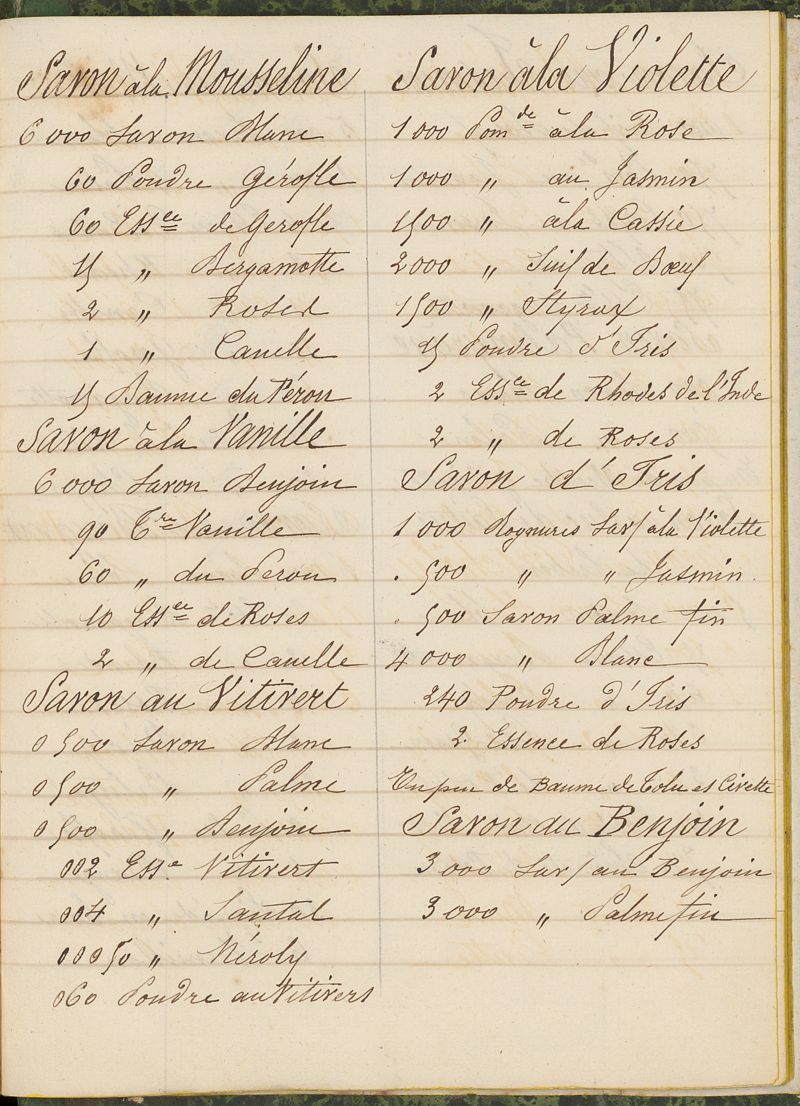 Savon à la Mousseline
6 000 Savon Blanc
60 Poudre Gérofle
60 Ess.ce de Gerofle
15 „ Bergamotte
2 „ Roses
1 „ Canelle
15 Baume du Pérou
Savon à la Vanille
6 000 Savon Benjoin
90 T.re Vanille
60 „ du Perou
10 Ess.ce de Roses
2 „ de Canelle
Savon au Vitivert
0 500 Savon Blanc
0 500 „ Palme
0 500 „ Benjoin
002 Ess.e Vitivert
004 „ Santal
000 50 „ Néroly
060 Poudre au Vitivert
Savon à la Violette
1 000 Pom.de à la Rose
1 000 „ au Jasmin
1500 „ à la Cassie
2 000 „ Suif de Bœuf
1500 „ Styrax
15 Poudre d'Iris
2 Ess.ce de Rhodes de l'Inde
2 „ de Roses
Savon d'Iris
1 000 Rognures Sav/ à la Violette
. 500 „ „ Jasmin
. 500 Savon Palme fin
4 000 „ Blanc
240 Poudre d'Iris
2 Essence de Roses
Un peu de Baume de Tolu et Civette
Savon au Benjoin
3 000 Sav/ au Benjoin
3 000 „ Palme fin